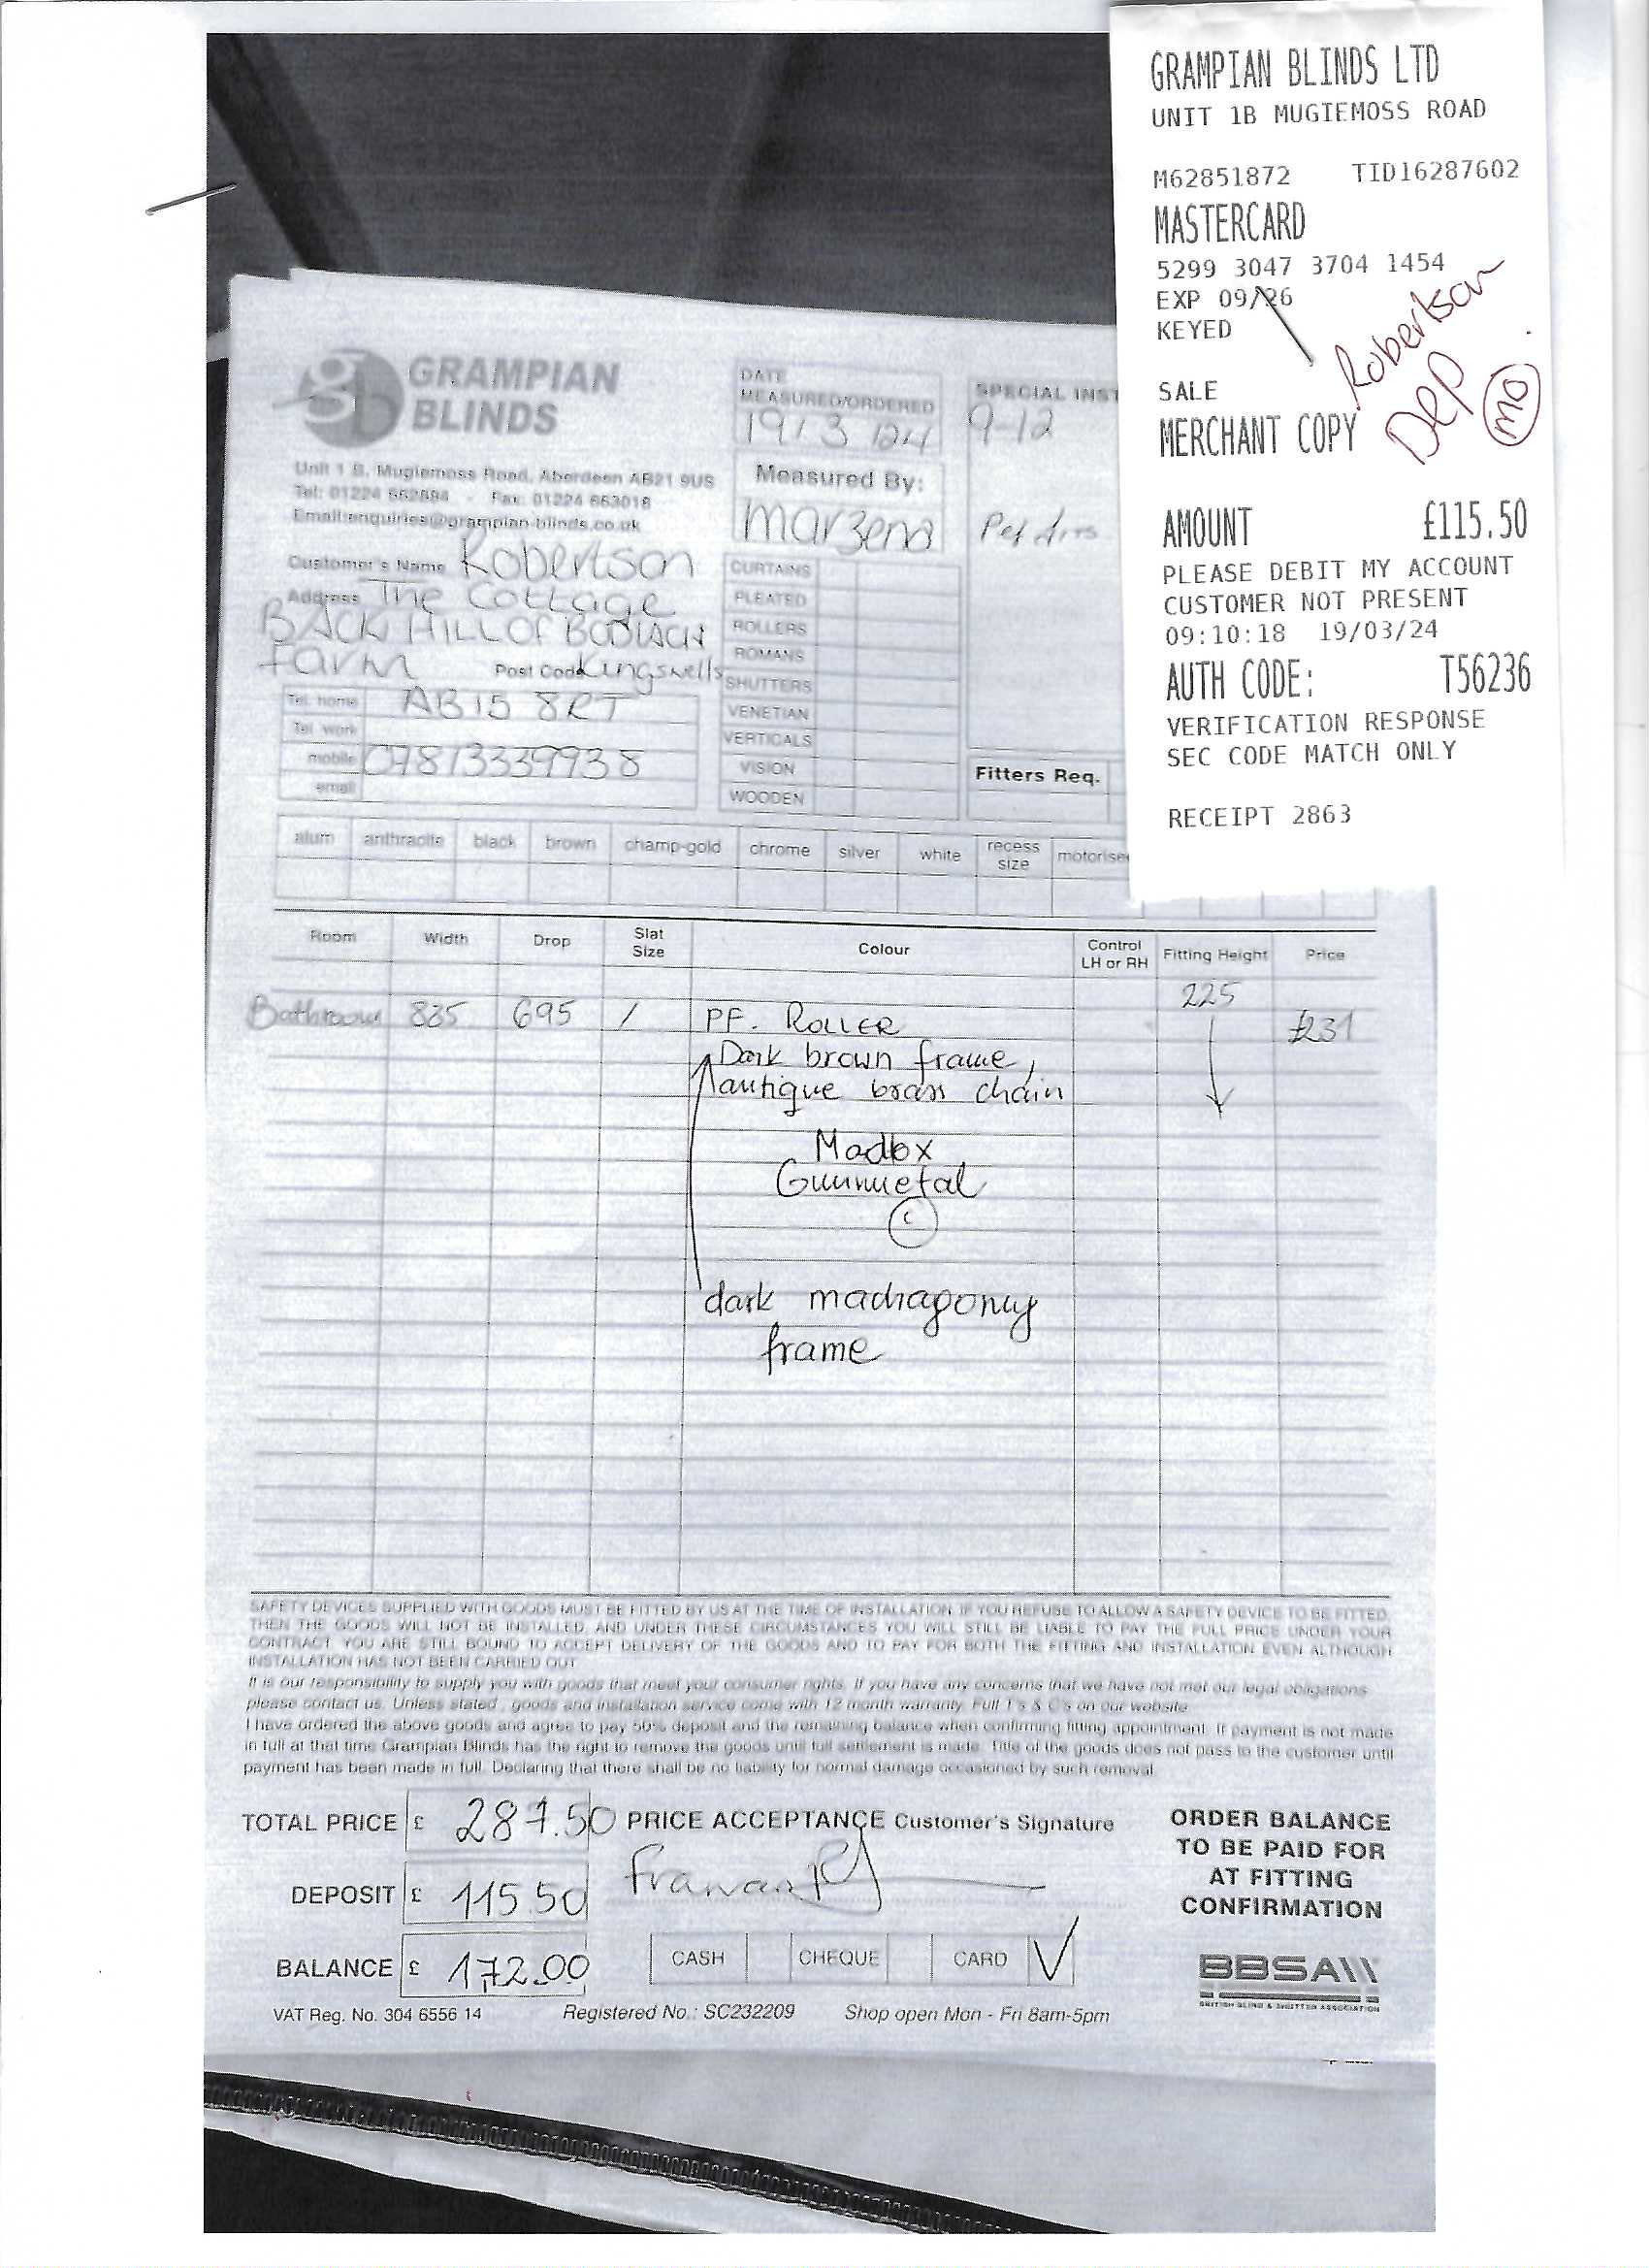 GRAMPIAN BLINDS LTD
UNIT 1B MUGIEMOSS ROAD
M62851872 TID16287602
MASTERCARD
5299 3047 3704 1454
EXP 09/26
KEYED
SALE
MERCHANT COPY
Robertson
Dep
mo
AMOUNT £115.50
PLEASE DEBIT MY ACCOUNT
CUSTOMER NOT PRESENT
09:10:18 19/03/24
AUTH CODE: T56236
VERIFICATION RESPONSE
SEC CODE MATCH ONLY
RECEIPT 2863
gb GRAMPIAN
BLINDS
Unit 1 B, Mugiemoss Road, Aberdeen AB21 9US
Tel: 01224 662694 - Fax: 01224 663018
Email:enquiries@grampian-blinds.co.uk
DATE
MEASURED/ORDERED
19/3/24
Measured By:
Marzena
SPECIAL INST
9-12
Customer's Name Robertson
Address The Cottage
BACK HILL OF
Farm Post Code Kingswells
Tel. home AB15 8RT
Tel. work
mobile 07813339938
email
CURTAINS
PLEATED
ROLLERS
ROMANS
SHUTTERS
VENETIAN
VERTICALS
VISION
WOODEN
Fitters Req.
alum anthracite black brown champ-gold chrome silver white recess size motorise
Room Width Drop Slat Size Colour Control LH or RH Fitting Height Price
Bathroom 835 695 / PF. ROLLER 225 £231
Dark brown frame,
antique brass chain
Madbx
Gunmetal
C
dark machagony
frame
SAFETY DEVICES SUPPLIED WITH GOODS MUST BE FITTED BY US AT THE TIME OF INSTALLATION. IF YOU REFUSE TO ALLOW A SAFETY DEVICE TO BE FITTED,
THEN THE GOODS WILL NOT BE INSTALLED, AND UNDER THESE CIRCUMSTANCES YOU WILL STILL BE LIABLE TO PAY THE FULL PRICE UNDER YOUR
CONTRACT. YOU ARE STILL BOUND TO ACCEPT DELIVERY OF THE GOODS AND TO PAY FOR BOTH THE FITTING AND INSTALLATION EVEN ALTHOUGH
INSTALLATION HAS NOT BEEN CARRIED OUT
It is our responsibility to supply you with goods that meet your consumer rights. If you have any concerns that we have not met our legal obligations
please contact us. Unless stated, goods and installation service come with 12 month warranty. Full T's & C's on our website
I have ordered the above goods and agree to pay 50% deposit and the remaining balance when confirming fitting appointment. If payment is not made
in full at that time Grampian Blinds has the right to remove the goods until full settlement is made. Title of the goods does not pass to the customer until
payment has been made in full. Declaring that there shall be no liability for normal damage occasioned by such removal.
TOTAL PRICE £ 287.50 PRICE ACCEPTANCE Customer's Signature
DEPOSIT £ 115.50
BALANCE £ 172.00
CASH CHEQUE CARD
ORDER BALANCE
TO BE PAID FOR
AT FITTING
CONFIRMATION
BBSA
BRITISH BLIND & SHUTTER ASSOCIATION
VAT Reg. No. 304 6556 14 Registered No.: SC232209 Shop open Mon - Fri 8am-5pm